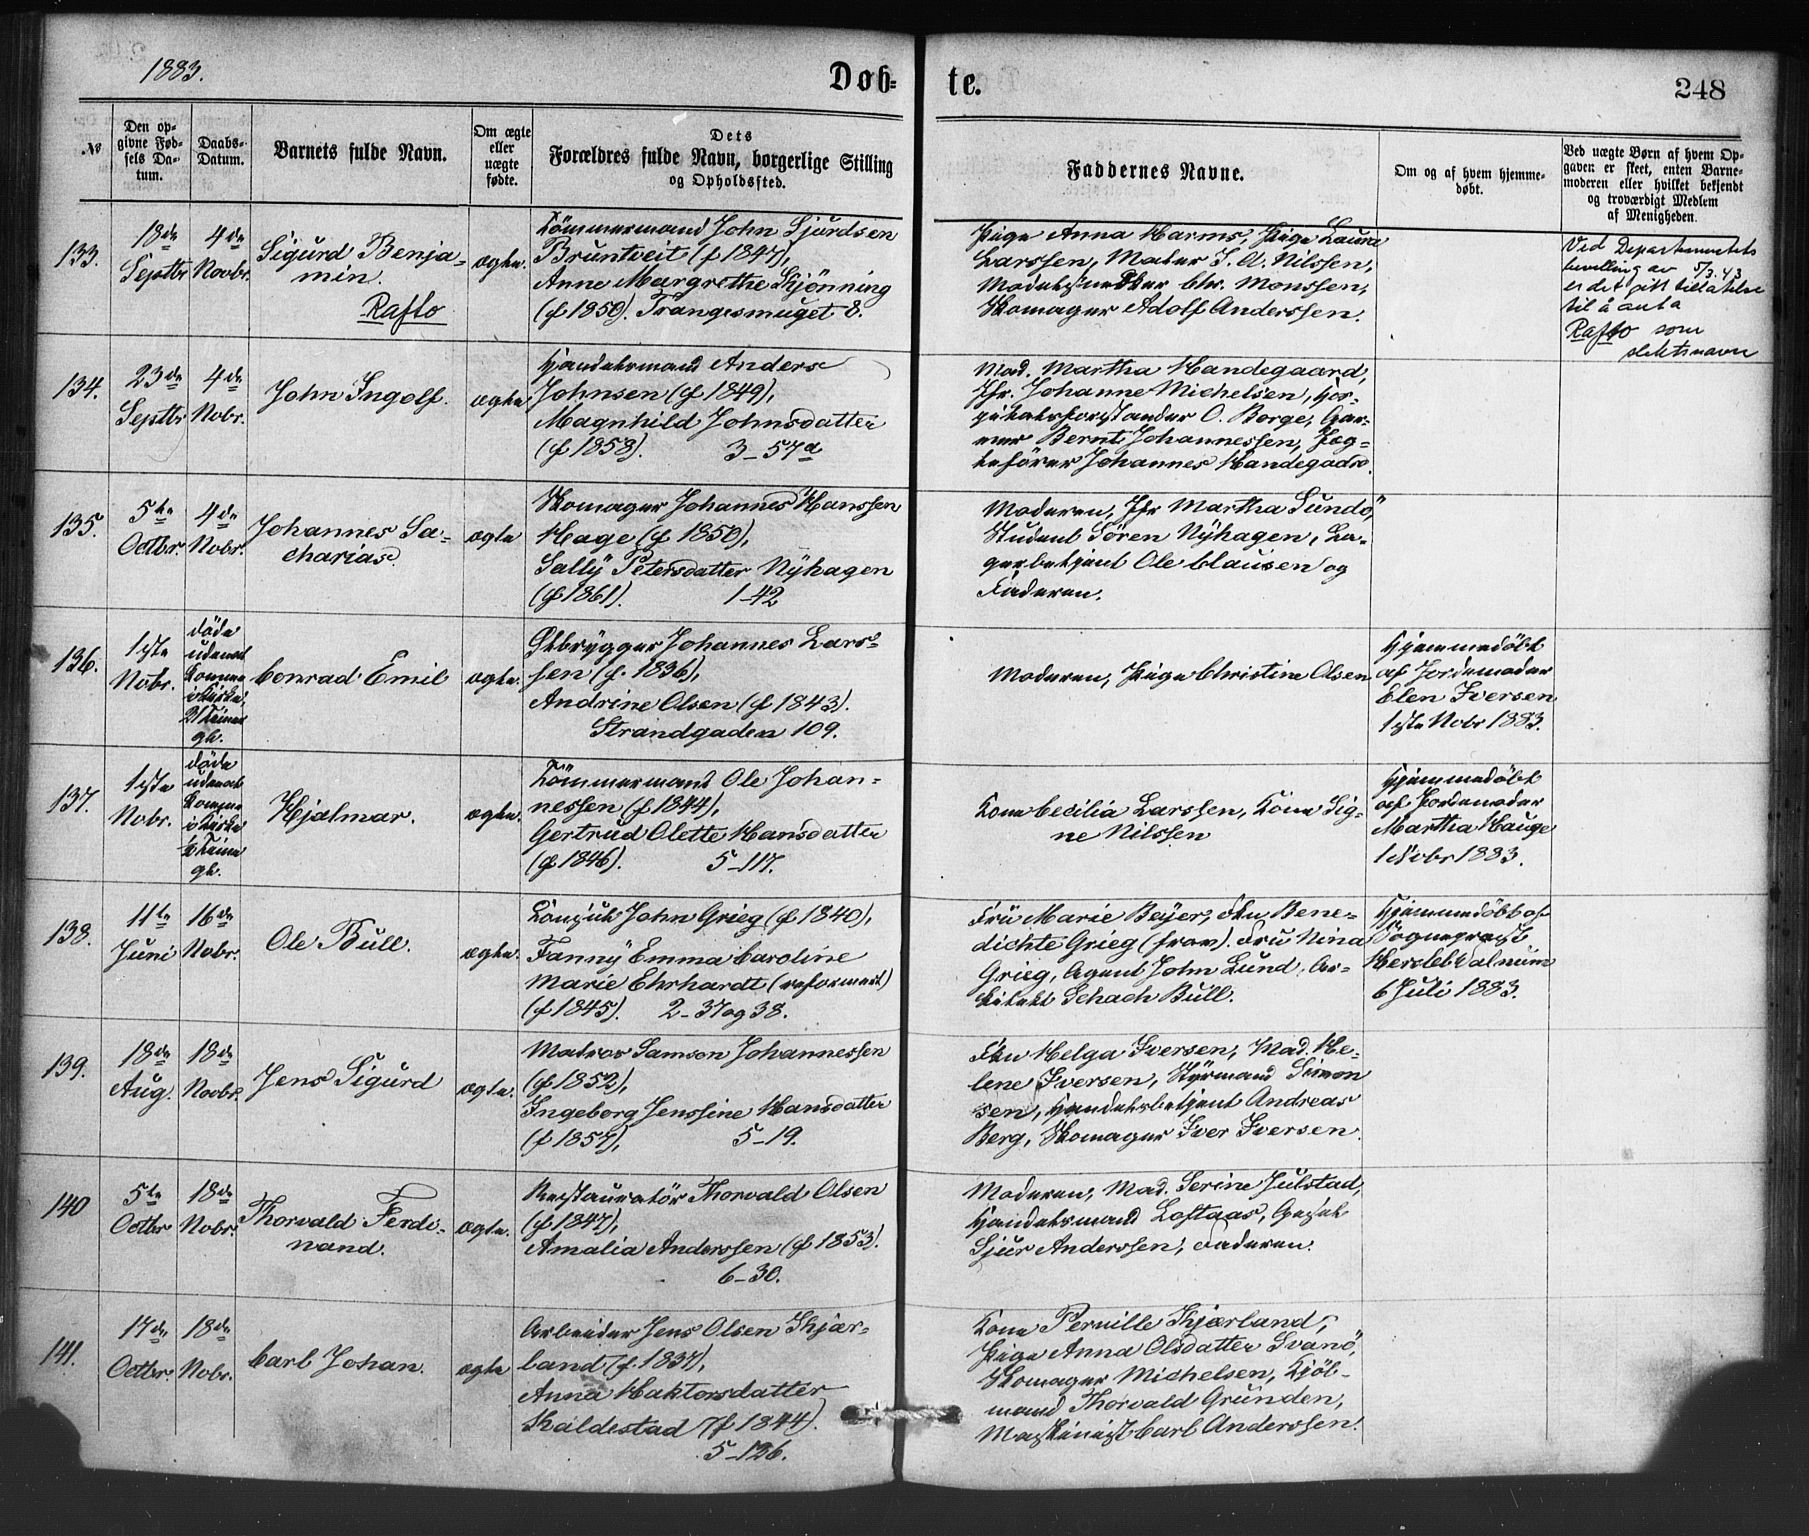 1883.
Døb-
te.
248
No
Den opgivne Fødsels Datum.
Daabs-Datum.
Barnets fulde Navn.
Om ægte eller uægte fødte.
Dets Forældres fulde Navn, borgerlige Stilling og Opholdssted.
Faddernes Navne.
Om og af hvem hjemmedøbt.
Ved uægte Børn af hvem Opgaven er skeet, enten Barnemoderen eller hvilket bekjendt og troværdigt Medlem af Menigheden.
133.
18de Septbr
4de Novbr.
Sigurd Benja-
min.
Rafto
ægte.
Tömmermand John Sjurdsen
Bruntveit (f 1847),
Anne Margrethe Skjönning
(f 1850). Trangesmuget 8.
Pige Anna Harms, Pige Laura
Larssen, Matr S. A. Nilssen,
Chr. Monssen,
Skomager Adolf Anderssen.
Ved Departementets
bevilling av 5/3.43
er det gitt tillatelse
til å anta
Rafto som
slektsnavn
134.
23de Septbr
4de Nobr.
John Ingolf.
ægte
Handelsmand Anders
Johnsen (f 1849),
Magnhild Johnsdatter
(f 1858). 3-57a
Mad. Martha Handegaard,
Jfr. Johanne Michelsen, Hos-
pitalsforstander O. Borge, Gar-
ver Bernt Johannessen, Fog-
tefører Johannes Handegaard.
135.
5te Octbr.
4de Nobr.
Johannes Sa-
charias.
ægte
Skomager Johannes Hanssen
Hage (f 1850),
Sally Petersdatter Nyhagen
(f 1861). 1-42
Moderen, Jfr Martha Sundö,
Student Sören Nyhagen, La-
gerbetjent Ole Clausen og
Faderen.
136.
1ste Nobr.
döde
udenat
komme
i Kirke,
gl.
Conrad Emil
ægte.
Ølbrygger Johannes Lars-
sen (f. 1836),
Andrine Olsen (f 1843).
Strandgaden 109.
Moderen, Pige Christine Olsen
Hjemmedöbt
af Jordemoder
Elen Iversen
1ste Nobr 1883.
137.
1ste Nobr.
döde
udenat
komme
i Kirke
gl.
Hjalmar.
ægte.
Tömmermand Ole Johan-
nessen (f 1844),
Gertrud Olette Hansdatter
(f 1846). 5-117.
Kone Cecilia Larssen, Kone Sig-
ne Nilssen
Hjemmedöbt
af Jordemoder
Martha Hauge
1 Nobr 1883.
138.
11te Juni
16de Nobr.
Ole Bull.
ægte.
Konsul John Grieg (f 1840),
Fanny Emma Caroline
Marie Ehrhardt (reformert)
(f 1845). 2-37 og 38.
Fru Marie Beyer, Frk Bene-
dichte Grieg (frav). Fru Nina
Grieg, Agent John Lund, Ar-
kitekt Schach Bull.
Hjemmedöbt af
Sognepræst
Hersleb Walnum
6 Juli 1883.
139.
18de Aug.
18de Novbr.
Jens Sigurd
ægte.
Matros Samson Johannessen
(f 1852),
Ingeborg Jenssine Hansdatter
(f 1857), 5-19.
Frk Helga Iversen, Mad. He-
lene Iversen, Styrmand Simon-
sen, Handelsbetjent Andreas
Berg, Skomager Iver Iversen.
140
5te Octbr
18de Nobr.
Thorvald Ferdi-
nand.
ægte.
Restauratör Thorvald Olsen
(f 1847),
Amalia Anderssen (f 1853).
6-30.
Moderen, Mad. Serine Julstad,
Handelsmand Loftaas,
Sjur Anderssen, Faderen.
141.
17de Octbr.
18de Nobr.
Carl Johan.
ægte
Arbeider Jens Olsen Skjær-
land (f. 1837),
Anna Haktorsdatter
Skaldestad (f 1844).
5-126.
Kone Pernille Skjærland,
Pige Anna Olsdatter Svanö,
Skomager Michelsen, Kjöb-
mand Thorvald Grunden,
Maskinist Carl Anderssen.